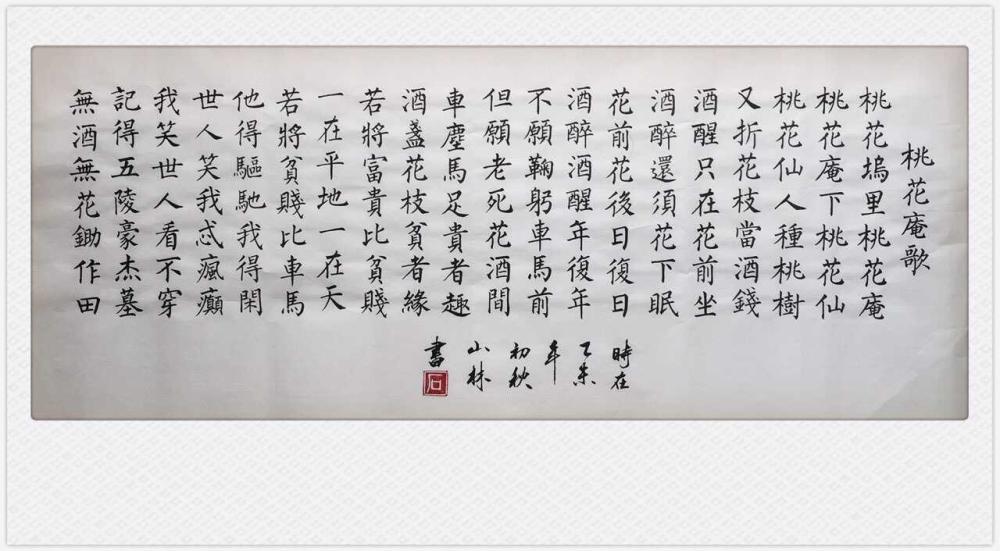 桃花庵歌
桃花塢里桃花庵
桃花庵下桃花仙
桃花仙人種桃樹
又折花枝當酒錢
酒醒只在花前坐
酒醉還須花下眠
花前花後日復日
酒醉酒醒年復年
不願鞠躬車馬前
但願老死花酒間
車塵馬足貴者趣
酒盞花枝貧者緣
若將富貴比貧賤
一在平地一在天
若將貧賤比車馬
他得驅馳我得閑
世人笑我忒瘋癲
我笑世人看不穿
記得五陵豪杰墓
無酒無花鋤作田
時在
乙未
年
初秋
小林
書
石